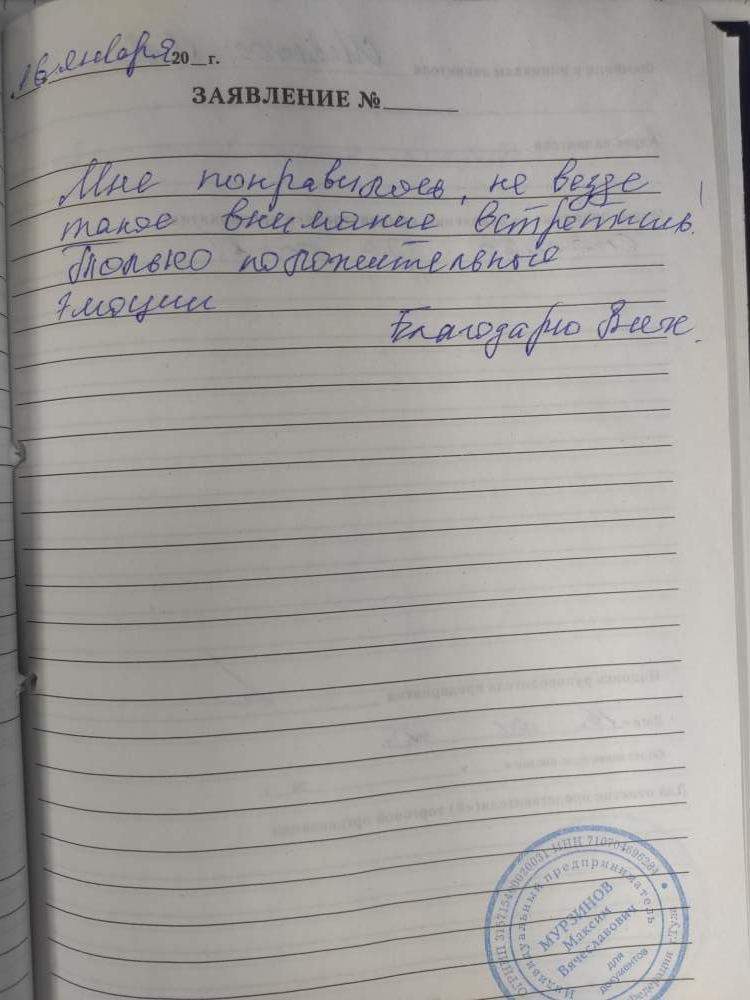 16 января 20 г.
ЗАЯВЛЕНИЕ №
Мне понравилось, не везде
такое внимание встретишь.
Только положительные
эмоции
Благодарю Всех.
Индивидуальный предприниматель
МУРЗИНОВ
Максим
Вячеславович
для
документов